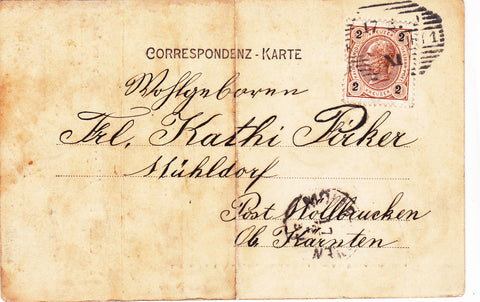 CORRESPONDENZ-KARTE
2 2
KREUZER
2 2
Wohlgeboren
Frl. Kathi Pirker
Mühldorf
Post Kolbrucken
Ob. Kärnten